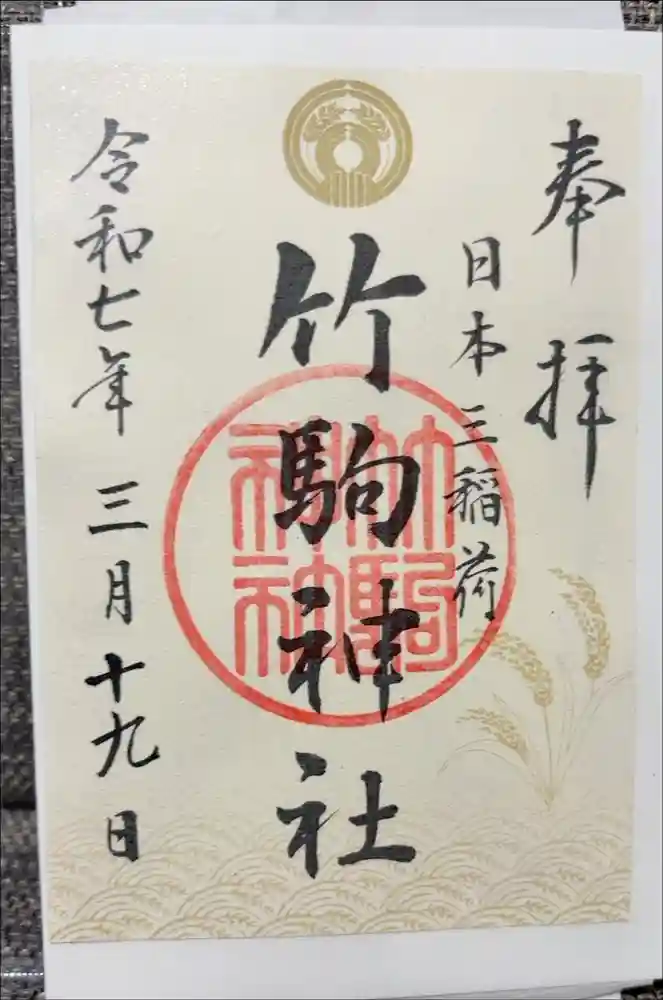 奉拝
日本三稲荷
竹駒神社
竹駒神社
令和七年三月十九日